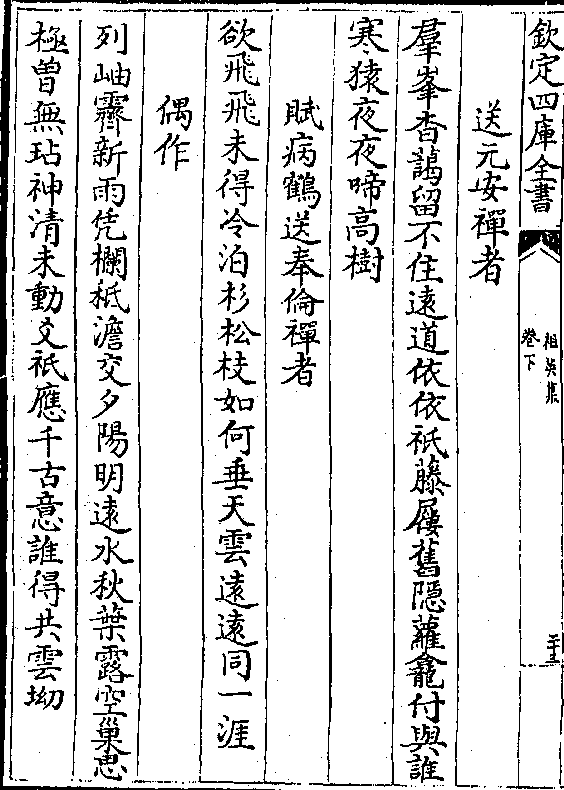 欽定四庫全書
祖英集
卷下
二十三
送元安禪者
羣峯杳靄留不住遠道依依祇藤屨舊隠蘿龕付與誰
寒猿夜夜啼高樹
賦病鶴送奉倫禪者
欲飛飛未得冷泊杉松枝如何垂天雲遠遠同一涯
偶作
列岫霽新雨凭欄秪澹交夕陽明遠水秋葉露空巢思
極曽無玷神清未動爻祇應千古意誰得共雲坳